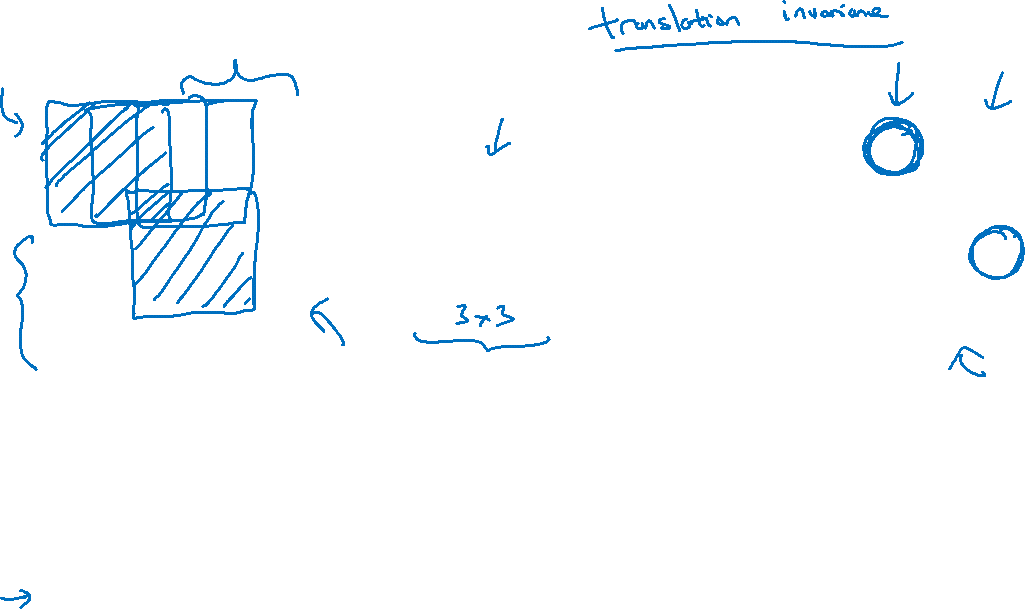 translation invariance
3x3